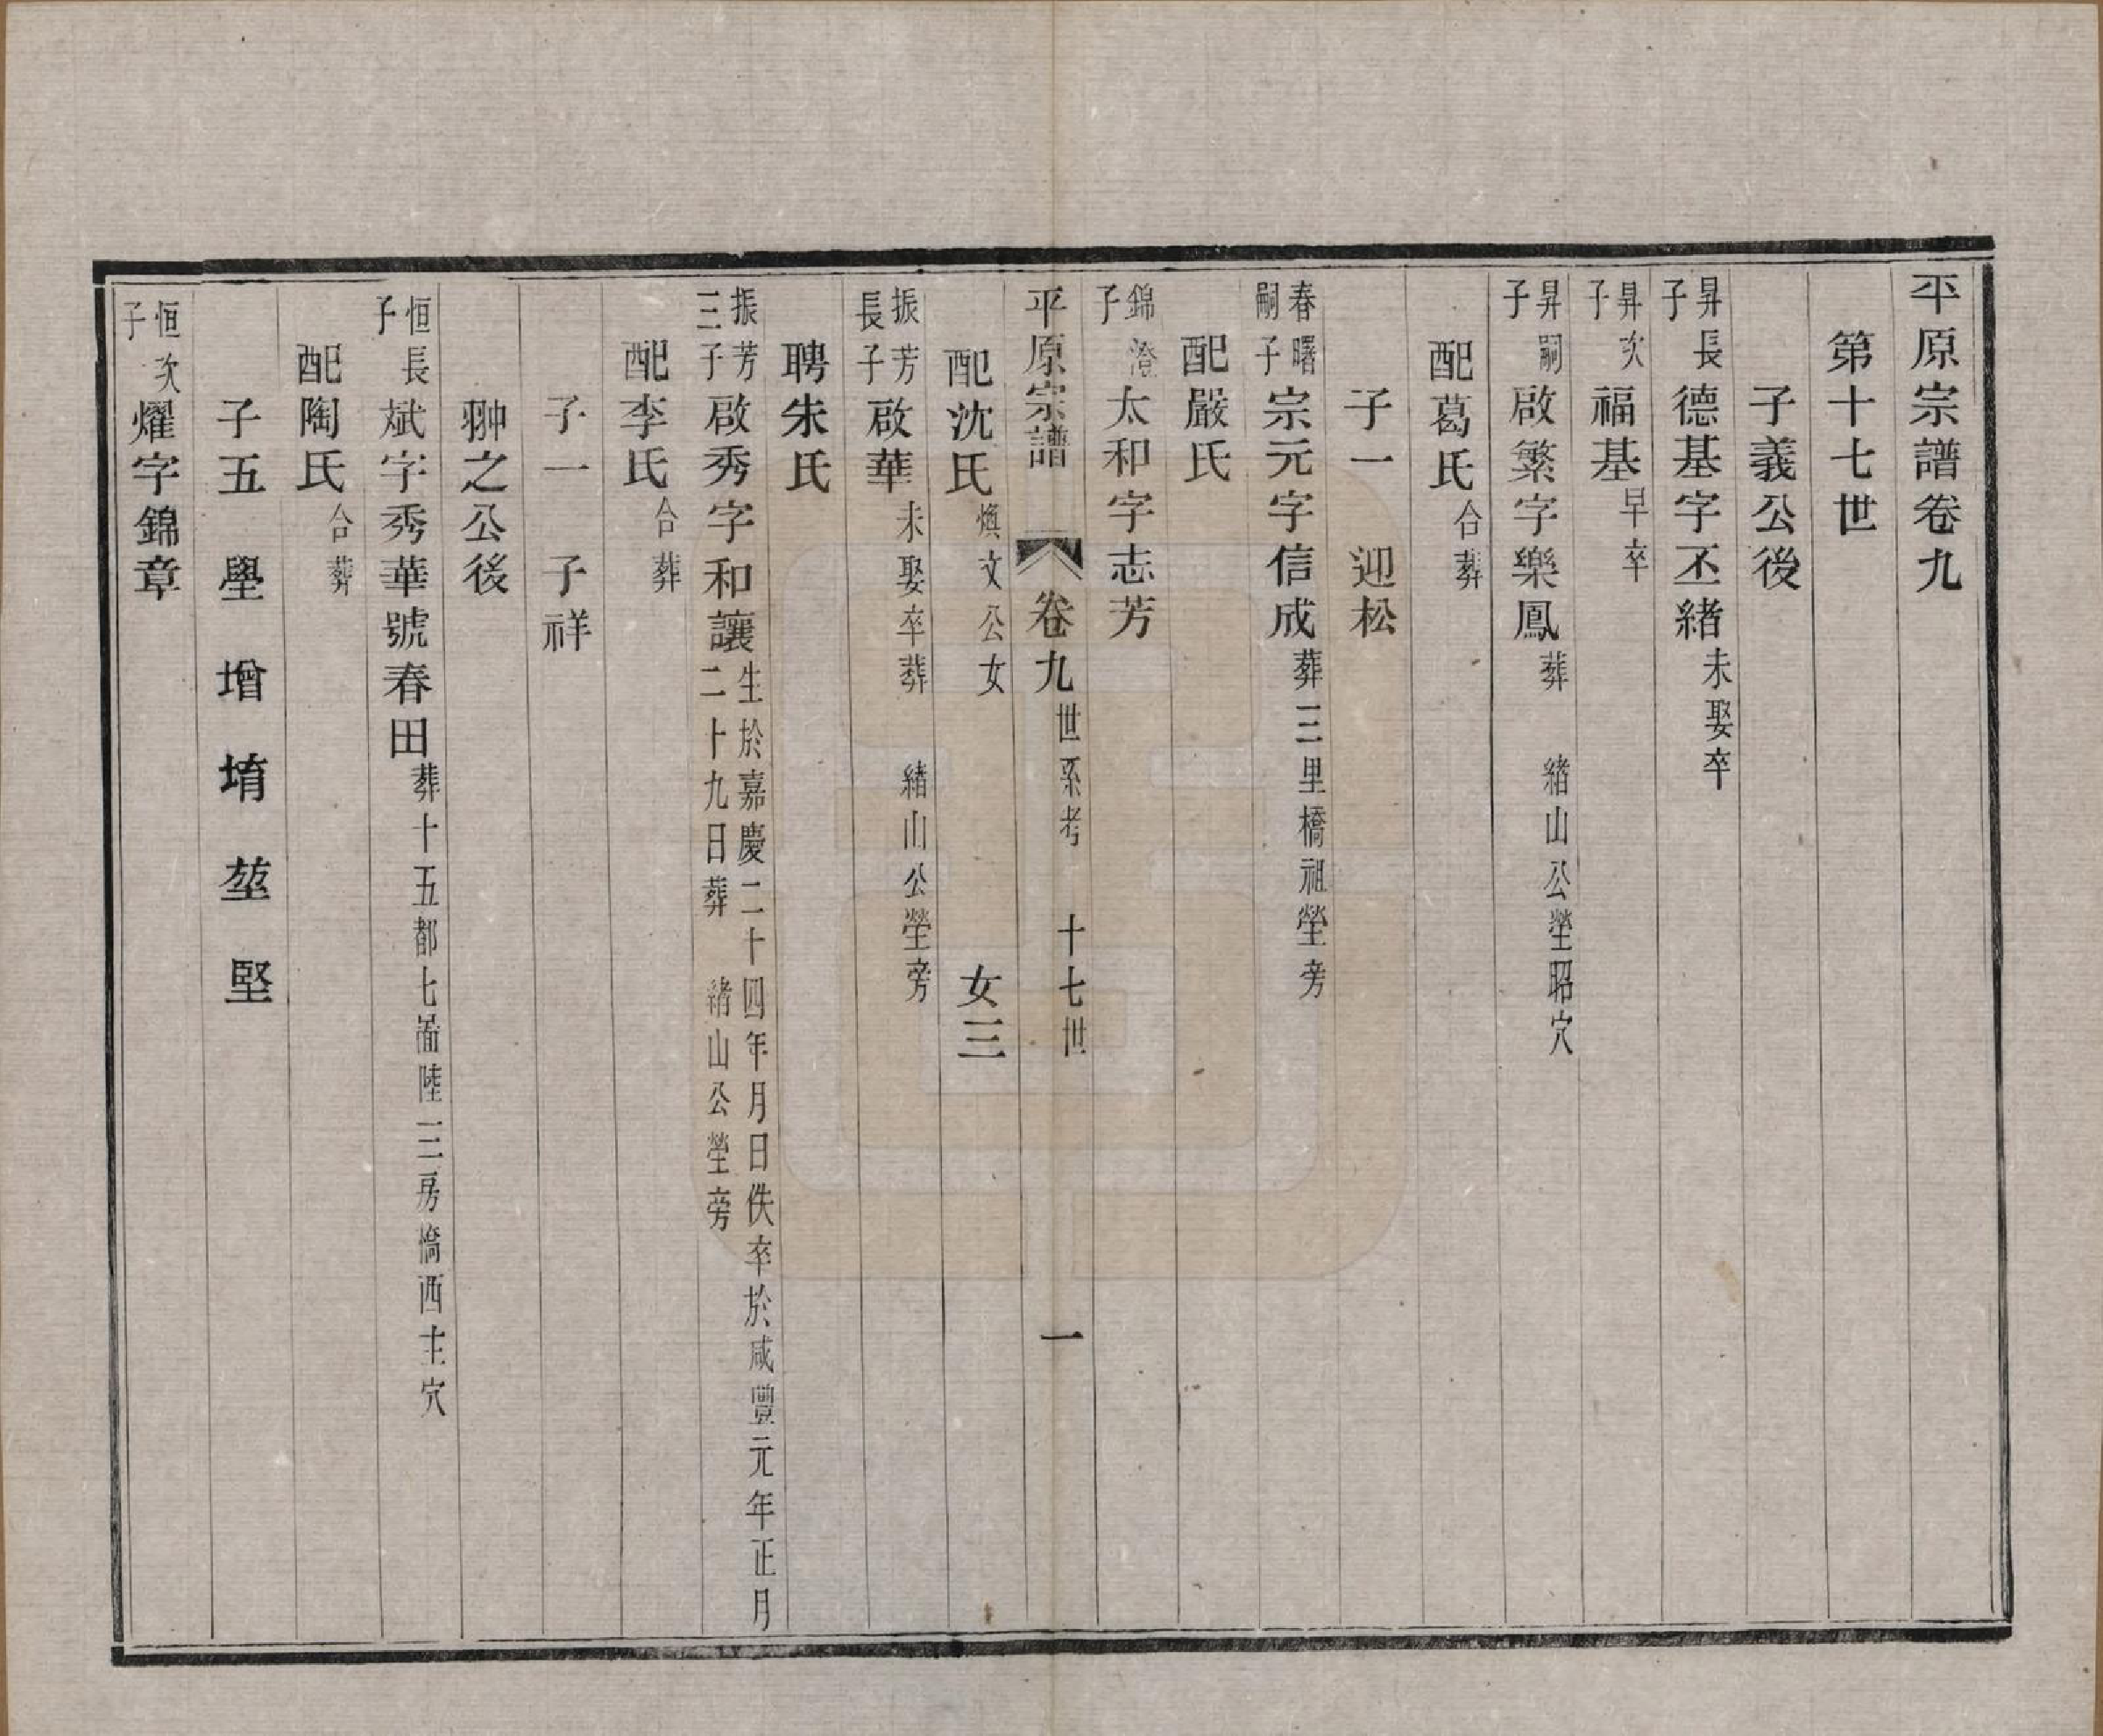 平原宗譜卷九
第十七世
子義公後
昇長子德基字丕緒未娶卒
昇次子福基早卒
昇嗣子啟繁字樂鳳葬 緒山公塋昭穴
配葛氏合葬
子一 迎松
春曙嗣子宗元字信成葬三里橋祖塋旁
配嚴氏
錦澄子太和字志芳
平原宗譜 卷九世系考 十七世 一
配沈氏煥文公女 女三
振芳長子啟華未娶卒葬 緒山公塋旁
聘朱氏
振芳三子啟秀字和讓生於嘉慶二十四年月日佚卒於咸豐元年正月二十九日葬 緒山公塋旁
配李氏合葬
子一 子祥
翀之公後
恒長子斌字秀華號春田葬十五都七啚陸三房橋西主穴
配陶氏合葬
子五 壆 增 堉 堃 堅
恒次子燿字錦章